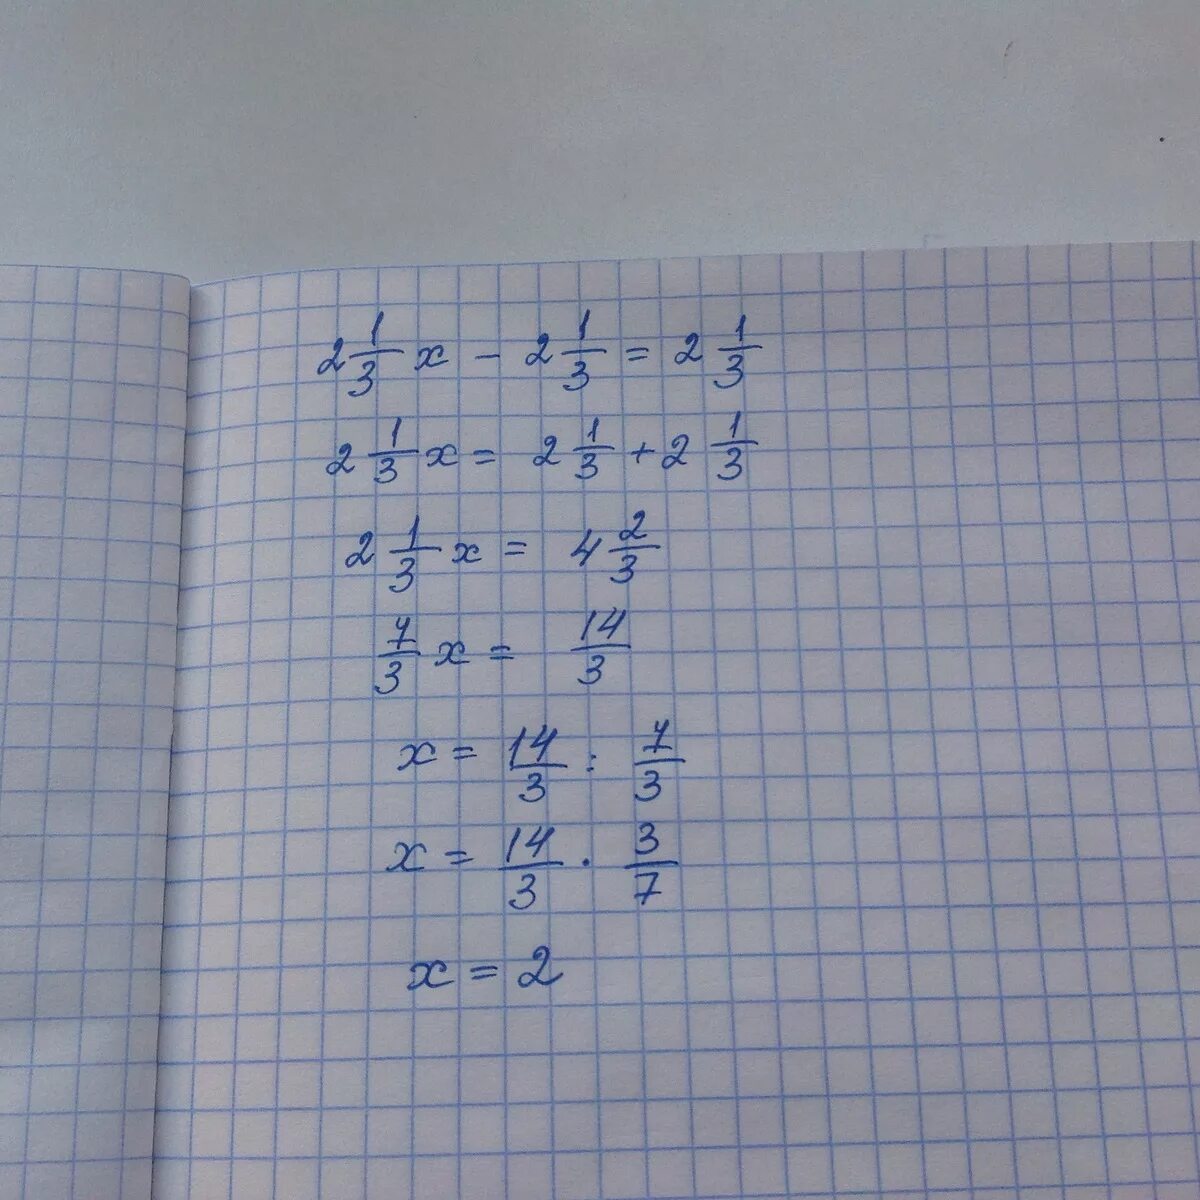 2 1/3 x - 2 1/3 = 2 1/3
2 1/3 x = 2 1/3 + 2 1/3
2 1/3 x = 4 2/3
7/3 x = 14/3
x = 14/3 : 7/3
x = 14/3 · 3/7
x = 2